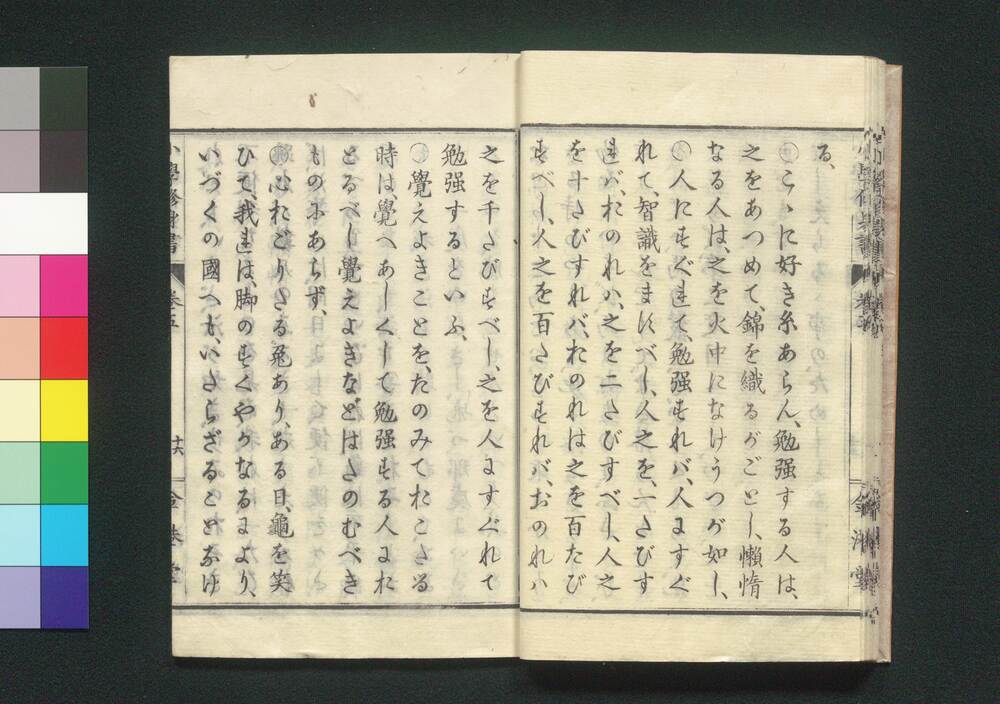 る、
こゝに好き糸あらん、勉强する人は、
之をあつめて、錦を織るがごとし、懶惰
なる人は、之を火中になけうつが如し、
人にすぐれて、勉强すれバ、人にすぐ
れて、智識をますべし、人之を、一たびす
れバ、おのれハ、之を二たびすべし、人之
を十たびすれバ、おのれは之を百たび
すべし、人之を百たびすれバ、おのれハ
之を千たびすべし、之を人にすぐれて
勉强するといふ、
覺えよきことを、たのみておこたる
時は、覺へあしくして勉强する人にお
とるべし、覺えよきなどはたのむべき
ものにあらず、
心おごりたる兔あり、ある日、龜を笑
ひて、我れは、脚のすくやかなるにより、
いづくの國へも、いたらざることなけ
小學修身書 卷五 十六 金港堂